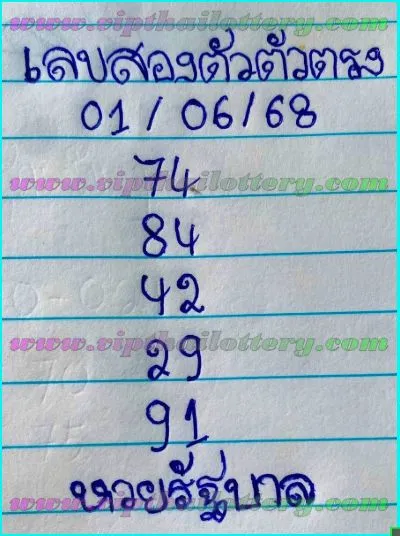 www.vipthailottery.com
เลขสองตัวตัวตรง
01/06/68
74
www.vipthailottery.com
84
42
www.vipthailottery.com
29
91
หวยรัฐบาล
www.vipthailottery.com